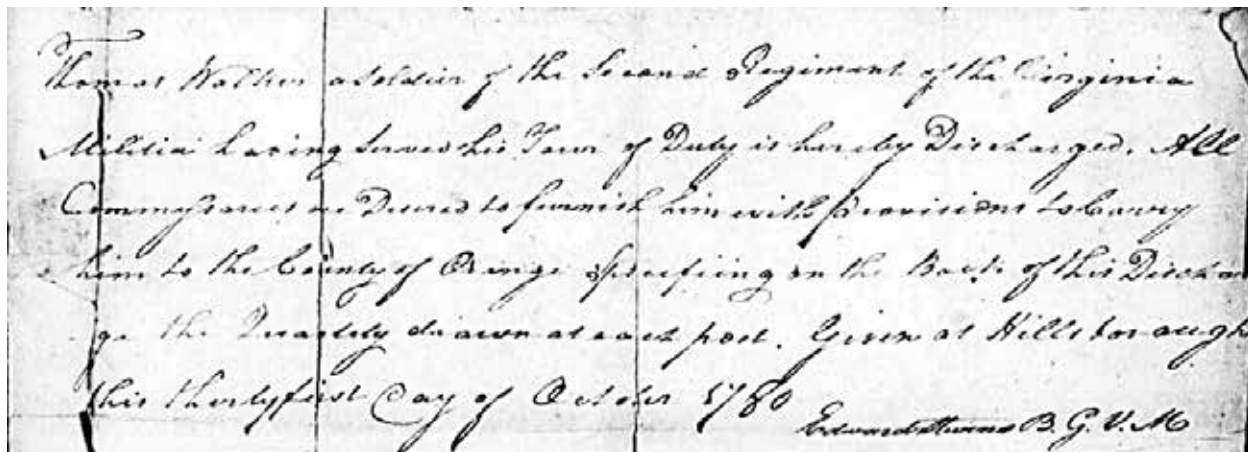 Thomas Walker a Soldier of the Second Regiment of the Virginia
Militia having Served his Tour of Duty is hereby Discharged. All
Commessaries are Desired to furnish him with Provisions to Carry
him to the County of Orange Specifiing on the Back of this Dischar
ge the Quantity drawn at each post. Given at Hillsborough
this thirtyfirst Day of October 1780
Edward Stevens B. G. V. M